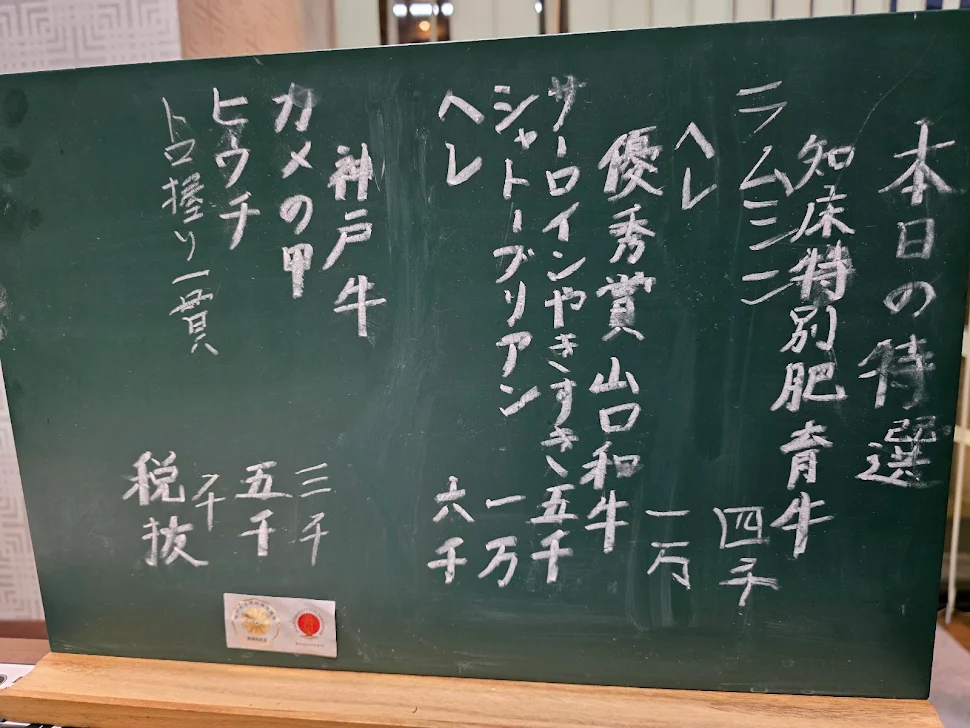 本日の特選
知床特別肥育牛
ラムシン 四千
ヘレ 一万
優秀賞 山口和牛
サーロインやきすき 五千
シャトーブリアン 一万
ヘレ 六千
神戸牛
カメの甲 三千
ヒウチ 五千
トロ握り一貫 千
税抜